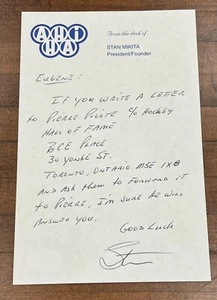 AHIHA
From the desk of...
STAN MIKITA
President/Founder
EUGENE:
IF YOU WRITE A LETTER
to PIERRE PILOTE c/o HOCKEY
HALL OF FAME
BCE PLACE
30 YONGE ST.
TORONTO, ONTARIO M5E 1X8
AND ASK THEM TO FORWARD IT
to PIERRE, I'M SURE HE WILL
ANSWER YOU.
GOOD LUCK
Stan